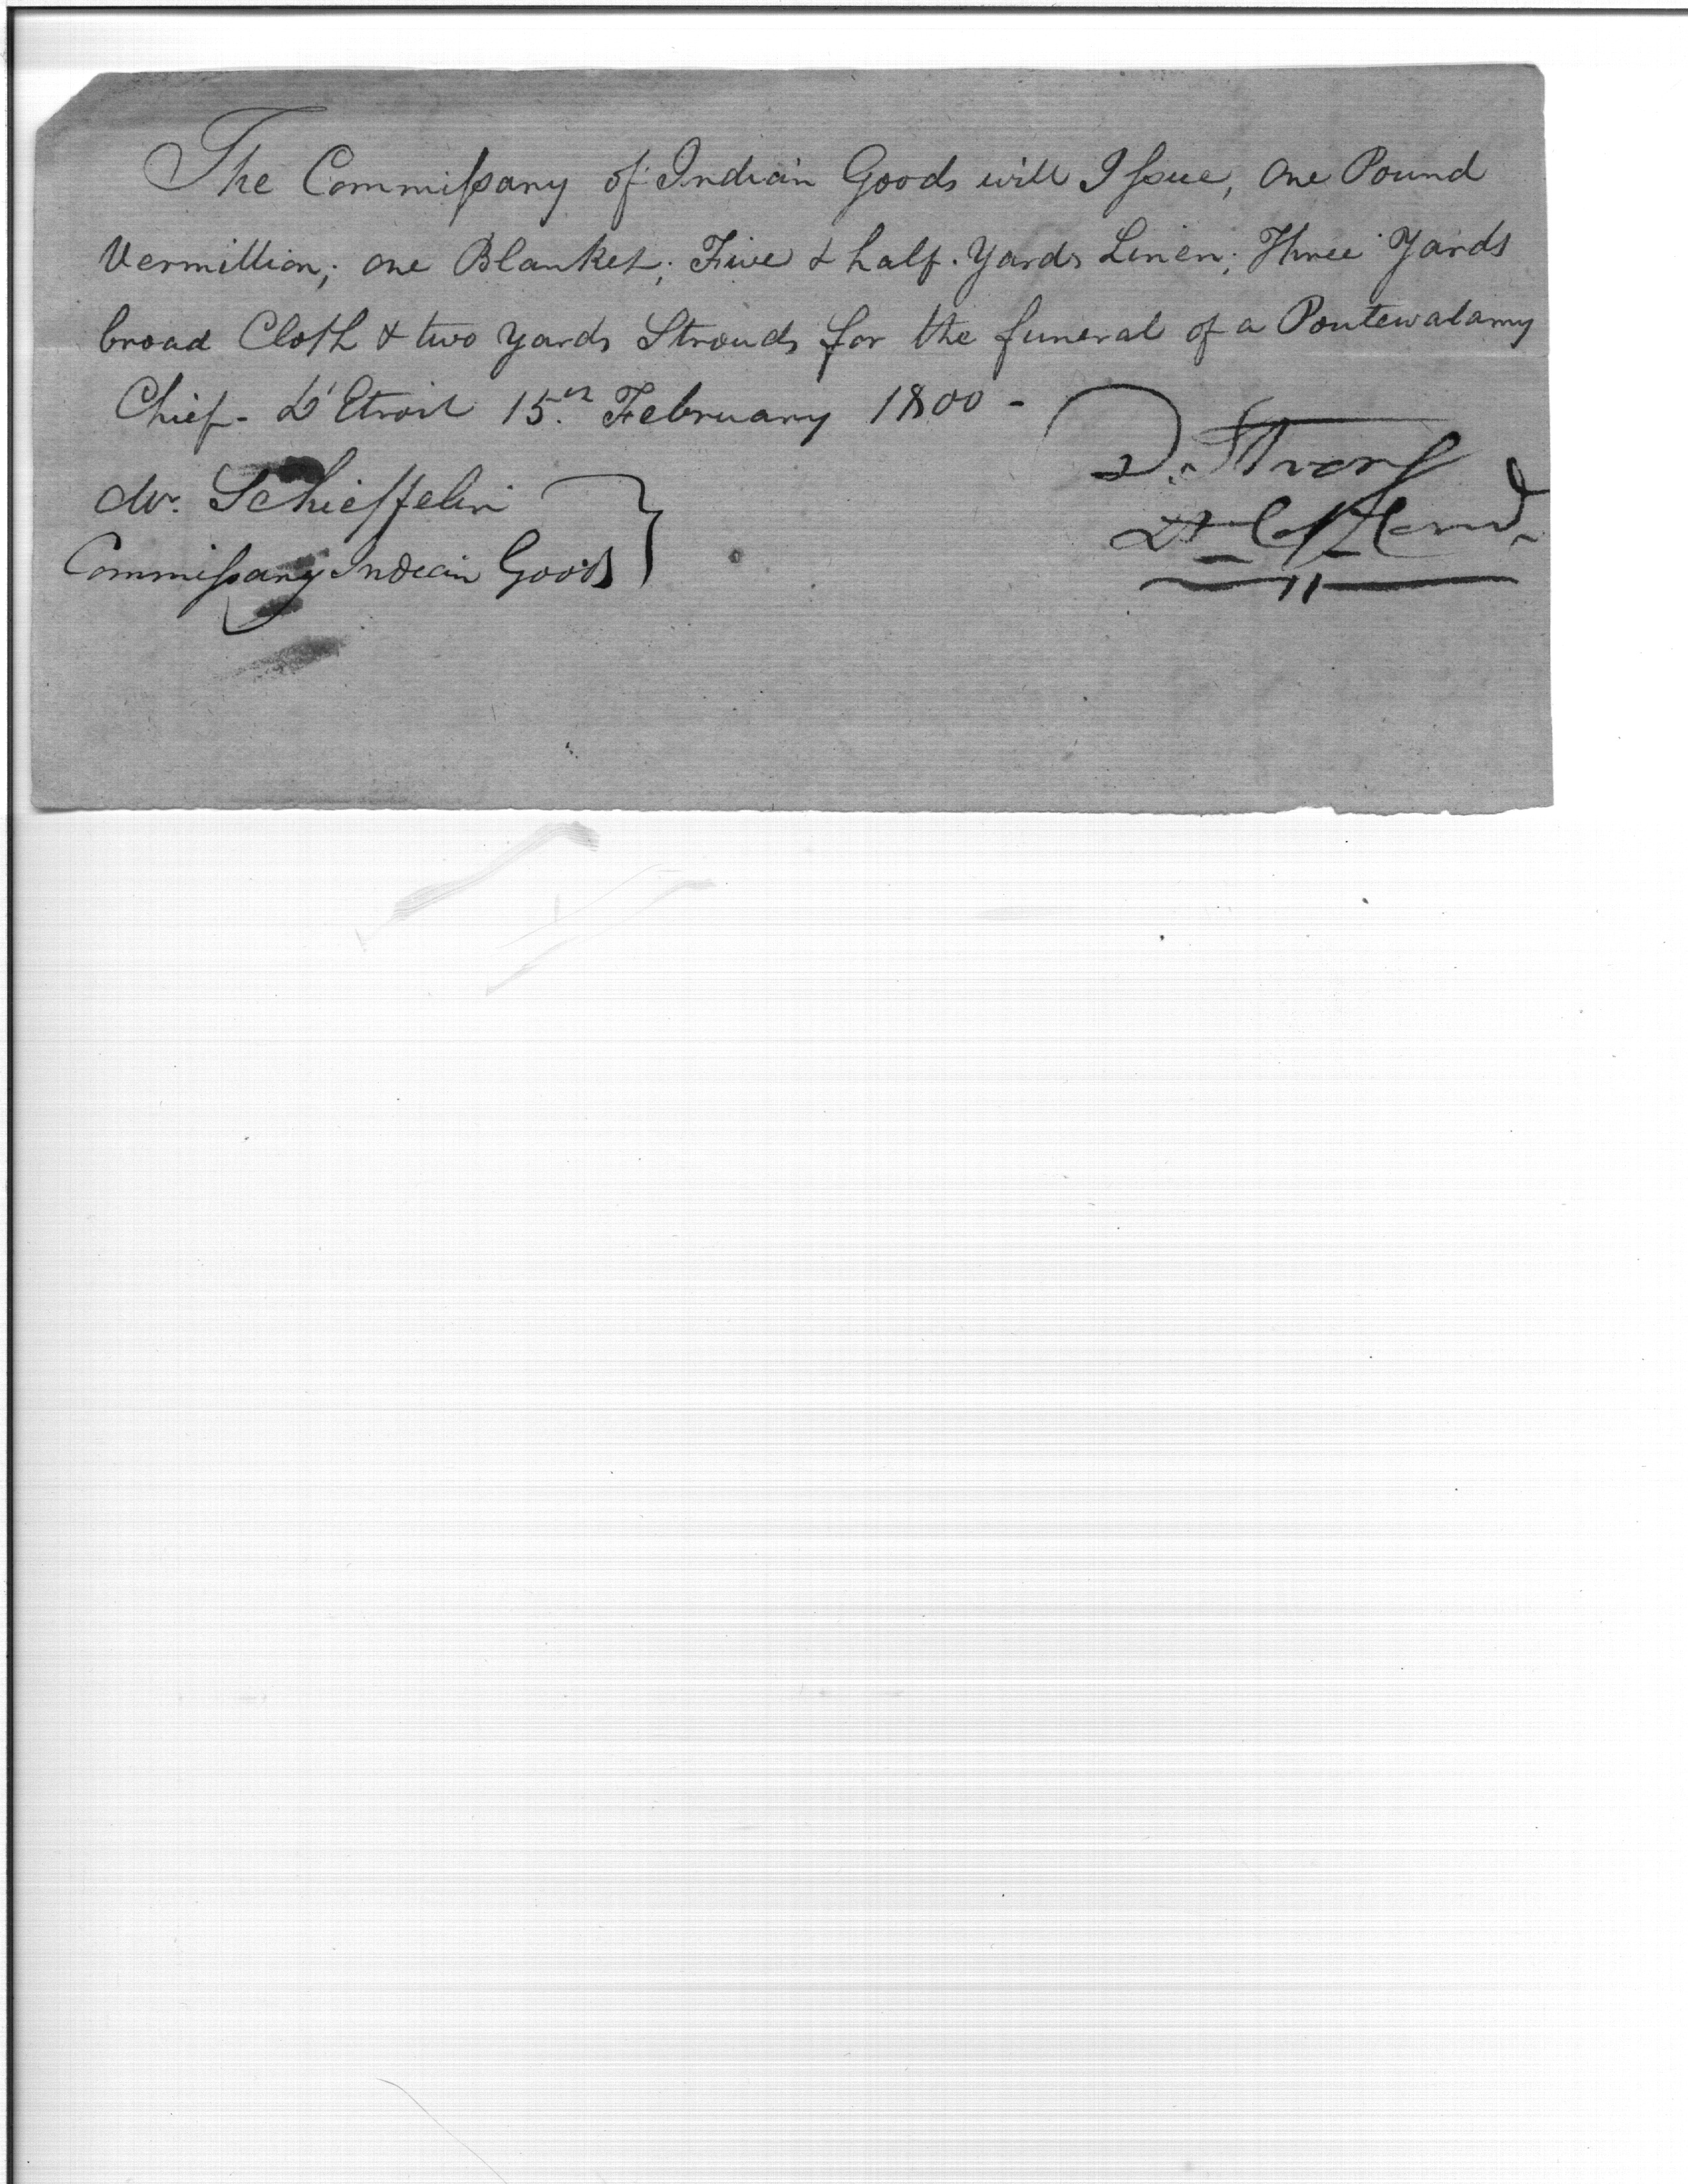 The Commissary of Indian Goods will Issue, One Pound
Vermillion; one Blanket; Five & half. Yards Linen; Three Yards
broad Cloth & two yards Strouds for the funeral of a Poutewatamy
Chief - D'Etroit 15th February 1800 -
D. Strong
Lt Col Comd.
Mr. Schieffelin
Commissary Indian Goods